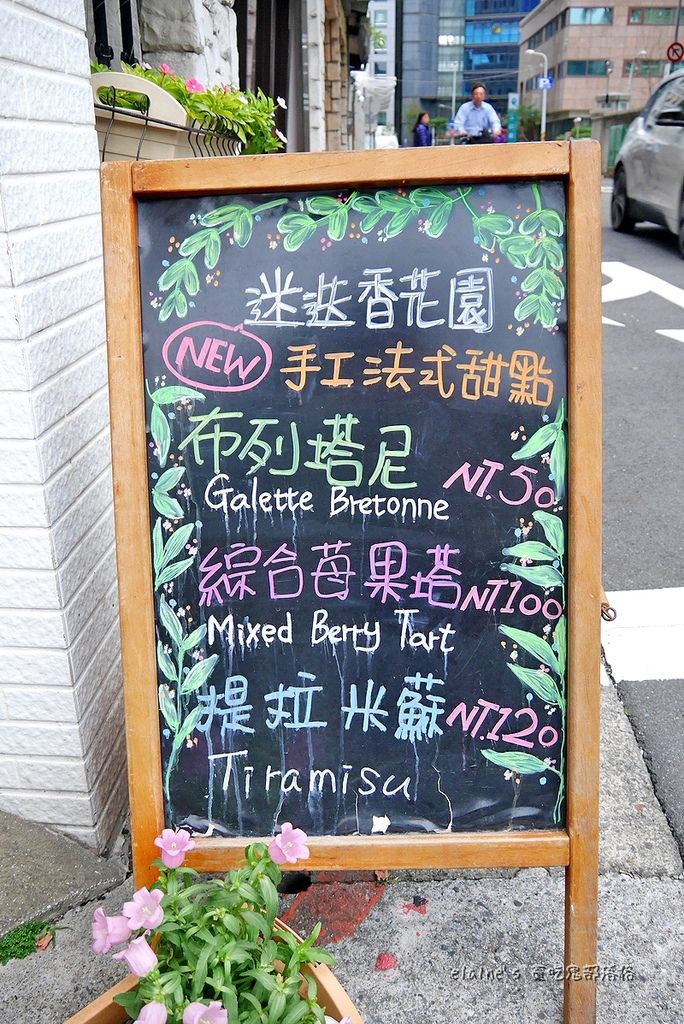 迷迭香花園
NEW 手工法式甜點
布列塔尼 NT.50
Galette Bretonne
綜合莓果塔 NT.100
Mixed Berry Tart
提拉米蘇 NT.120
Tiramisu
elaine's 靈吃鬼部落格